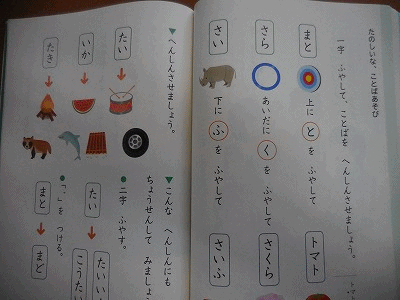 たのしいな、ことばあそび
一字 ふやして、ことばを へんしんさせましょう。
まと
上に と を ふやして
トマト
さら
あいだに く を ふやして
さくら
さい
下に ふ を ふやして
さいふ
▼へんしんさせましょう。
たい
いか
たき
▼こんな へんしんにも
ちょうせんして みましょ
●二字 ふやす。
たい
たいい
こうたい
●「゛」を つける。
まと
まど